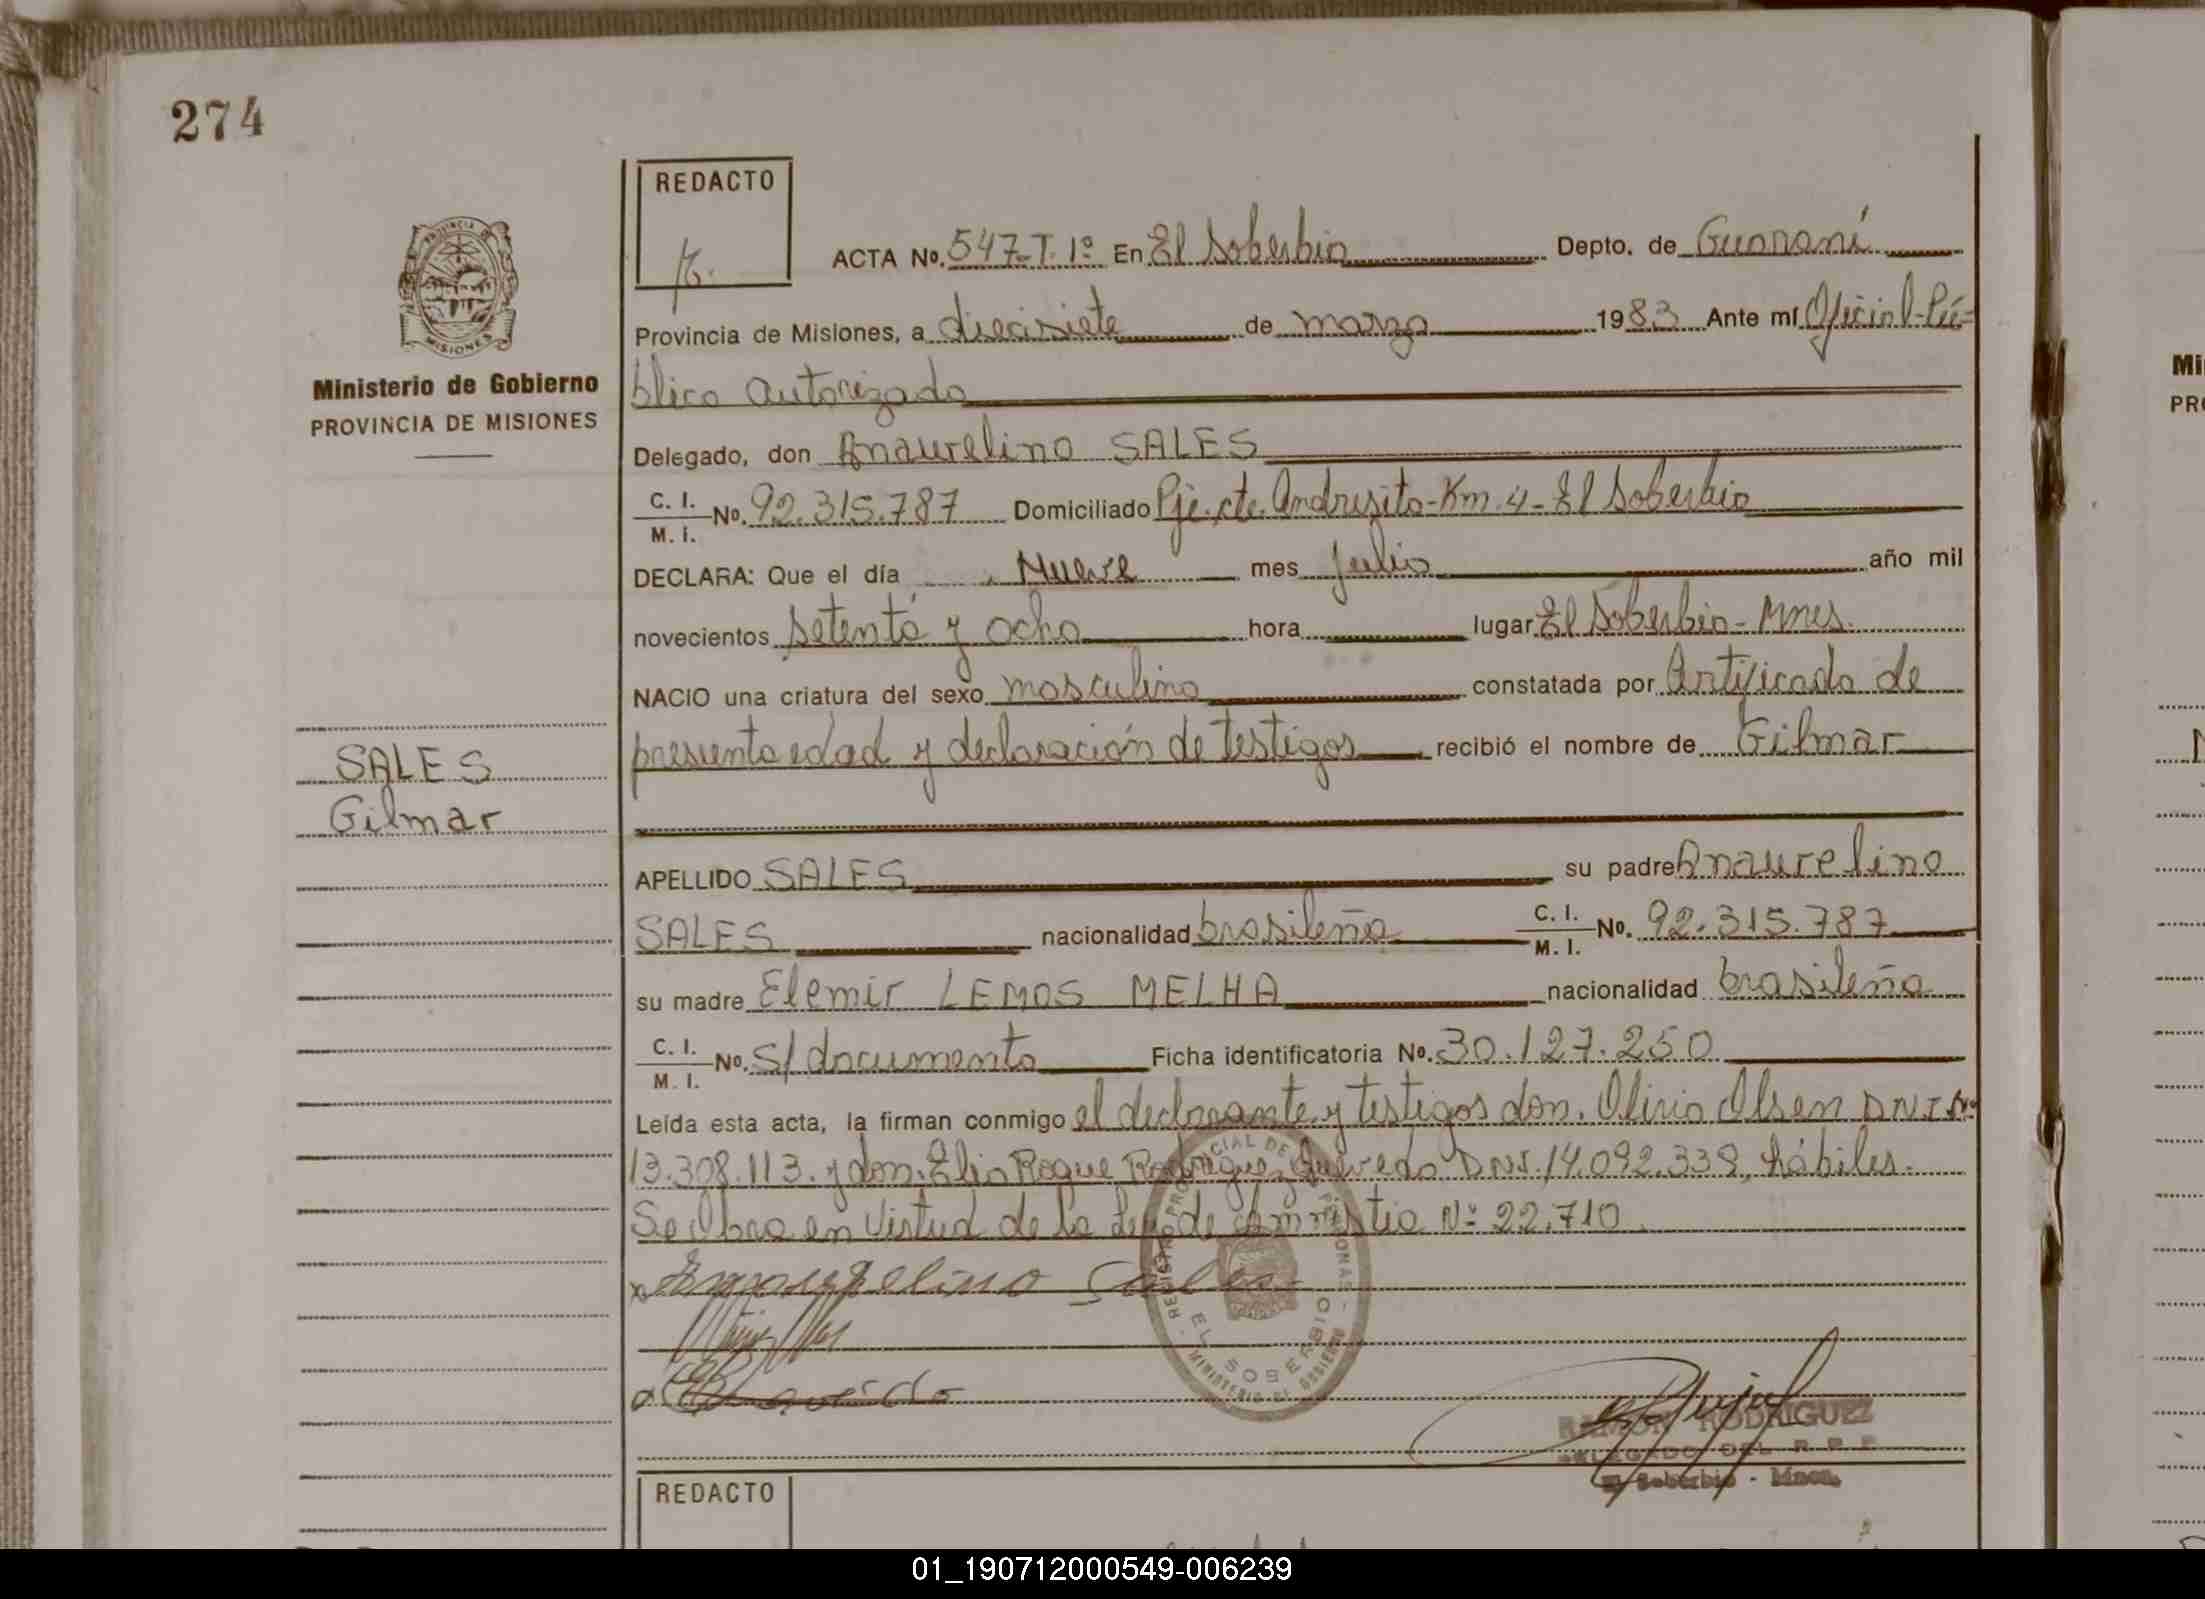 274
REDACTO
ACTA No. 547-T. 1º En El Soberbio Depto. de Guaraní
Provincia de Misiones, a diecisiete de marzo 1983 Ante mí Oficial Pú-
blico Autorizado
Ministerio de Gobierno
PROVINCIA DE MISIONES
Delegado, don Anaurelino SALES
C. I. M. I. No. 92.315.787 Domiciliado Pje. cte. Andresito-Km. 4- El Soberbio
DECLARA: Que el día Nueve mes Julio año mil
novecientos setenta y ocho hora lugar El Soberbio - Mnes.
NACIO una criatura del sexo masculino constatada por Certificado de
presunta edad y declaración de testigos recibió el nombre de Gilmar
SALES
Gilmar
APELLIDO SALES su padre Anaurelino
SALES nacionalidad brasileña C. I. M. I. No. 92.315.787
su madre Elemir LEMOS MELHA nacionalidad brasileña
C. I. M. I. No. S/ documento Ficha identificatoria No. 30.127.250
Leída esta acta, la firman conmigo el declarante y testigos don. Olirio Olsen D.N.I. Nº
13.398.113. y don. Elio Roque Rodriguez Quevedo D.N.I. 14.092.339, hábiles.
Se Obra en Virtud de la Ley de Amnistia Nº 22.710.
REGISTRO PROVINCIAL DE LAS PERSONAS
EL SOBERBIO
MINISTERIO DE GOBIERNO
RAMON RODRIGUEZ
DELEGADO DEL R. P. P.
El Soberbio - Mnes.
REDACTO
01_190712000549-006239